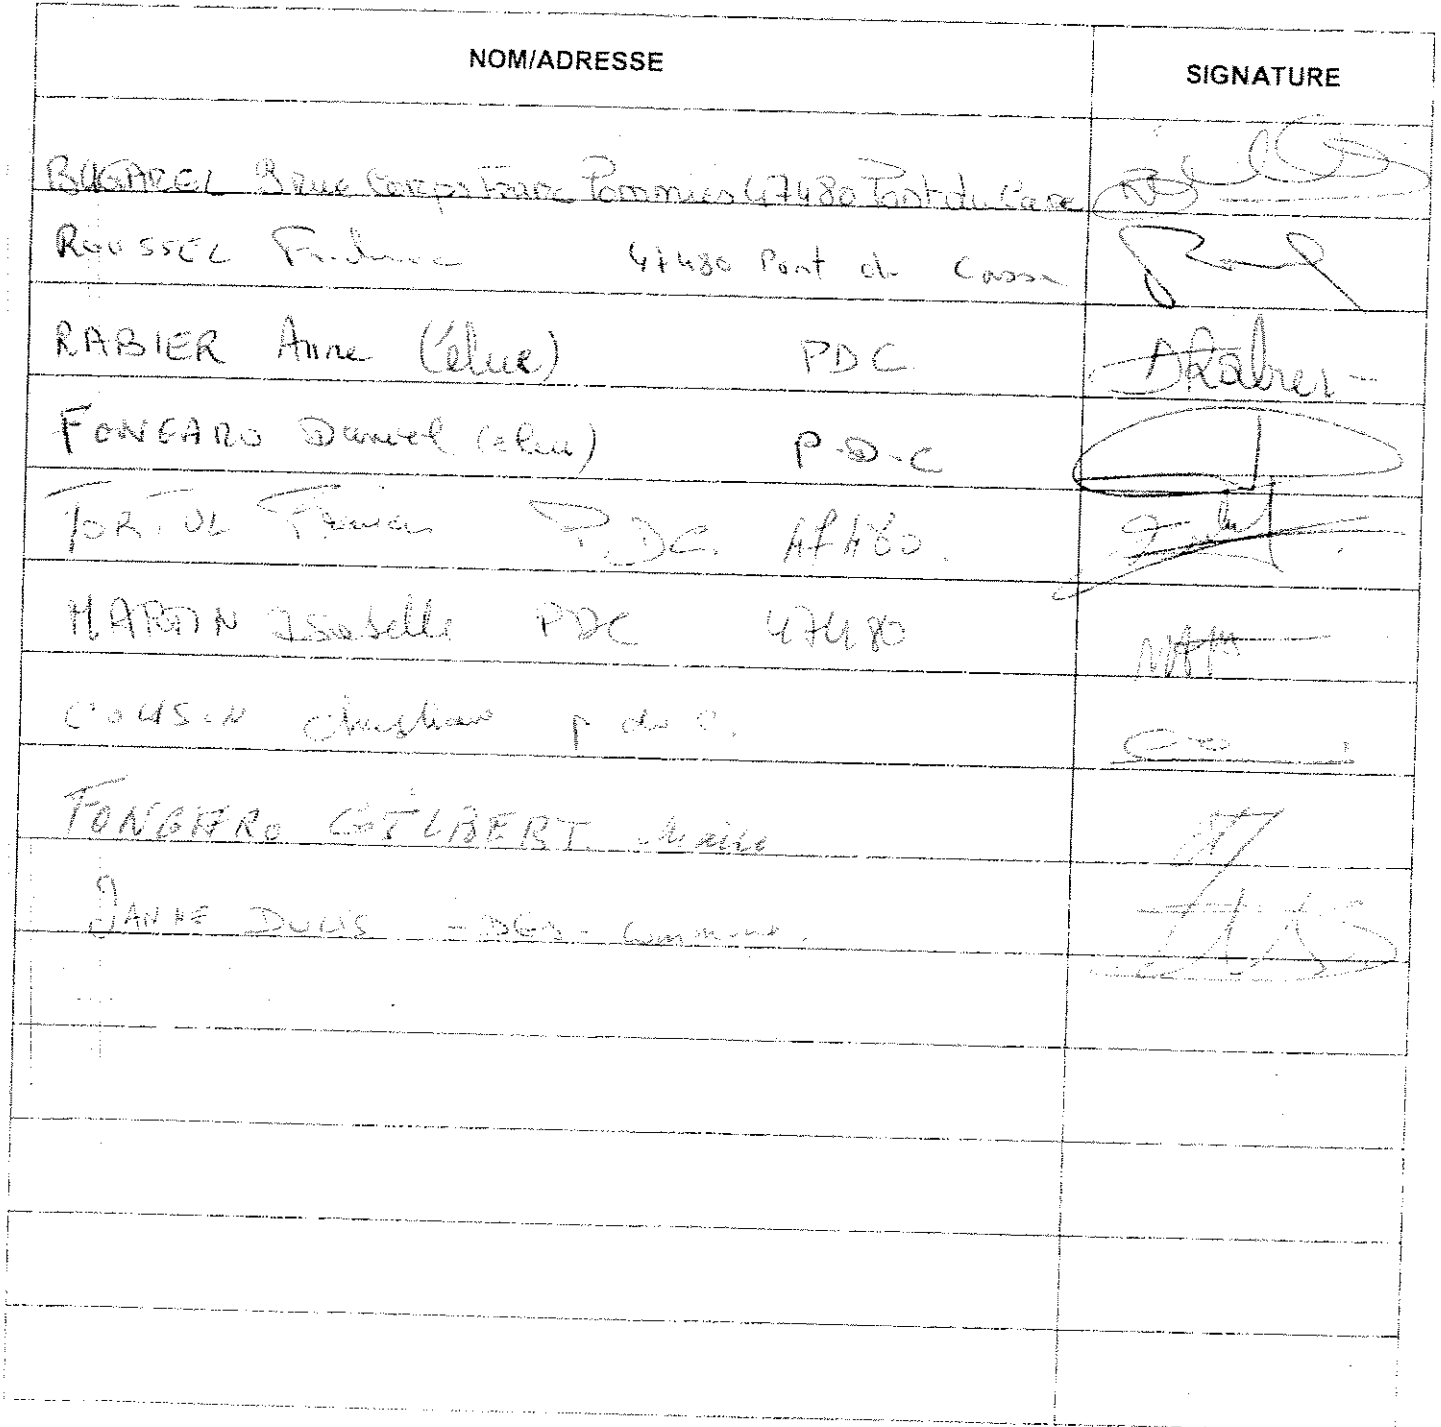 NOM/ADRESSE SIGNATURE
BUGAREL 9 rue Corps Franc Pommies 47480 Pont du Casse
ROUSSEL 47480 Pont du Casse
RABIER Anne (élue) PDC ARabier
FONGARO Daniel (élu) P.D.C
TORTUL Francis P.DC. 47480.
MARTIN Isabelle PDC 47480
COUSIN Christian P du C.
FONGARO GILBERT Maire
DULIS - DGS - Commune.